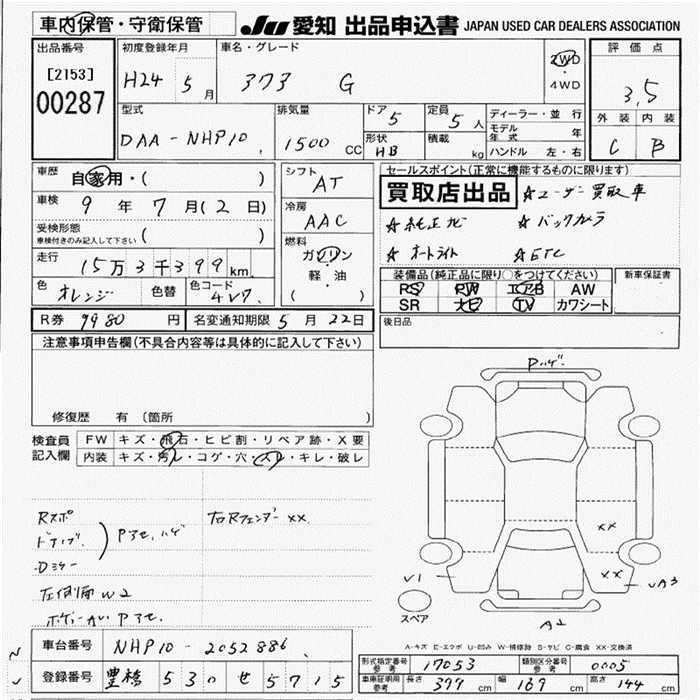 車内保管・守衛保管
JU 愛知 出品申込書 JAPAN USED CAR DEALERS ASSOCIATION
出品番号 初度登録年月 車名・グレード 2WD・4WD 評価点
[2153]
00287
H24 5月 373 G 3.5
型式 排気量 ドア 5 定員 5人 ディーラー・並行 外装 内装
DAA-NHP10 1500 CC 形状 HB 積載 kg モデル年式 年 C B
ハンドル 左・右
車歴 自家用・( ) シフト AT セールスポイント(正常に機能するものに限ります)
買取店出品 ☆ユーザー買取車
車検 9年7月(2日) 冷房 AAC ☆純正ナビ ☆バックカメラ
受検形態 車検付きのみ記入して下さい ( ) ☆オートライト ☆ETC
走行 15万3千399km 燃料 ガソリン・軽・油 ( )
装備品(純正品に限り○をつけてください) 新車保証書
色 オレンジ 色替 色コード 4V7
PS PW エアB AW
SR ナビ TV カワシート
R券 9980円 名変通知期限 5月22日 後日品
注意事項申告欄(不具合内容等は具体的に記入して下さい)
修復歴 有 [箇所 ]
検査員記入欄 FW キズ・飛石・ヒビ割・リペア跡・X要
内装 キズ・汚レ・コゲ・穴・スレ・キレ・破レ
Pハゲ
Rスポ 右Rフェンダー XX
ドアバイザー ) Pアセ、ハゲ
Dミラー
左側面 W2
ボディー小 Pアセ.
XX
V1 XX UA3
スペア A2
A-キズ E-エクボ U-凹み W-補修跡 S-サビ C-腐食 XX-交換済
車台番号 NHP10-2052886
登録番号 豊橋 530 せ 5715
型式指定番号 参考 17053 類別区分番号 参考 0005
車庫証明用 参考 長さ 377cm 幅 169cm 高さ 144cm